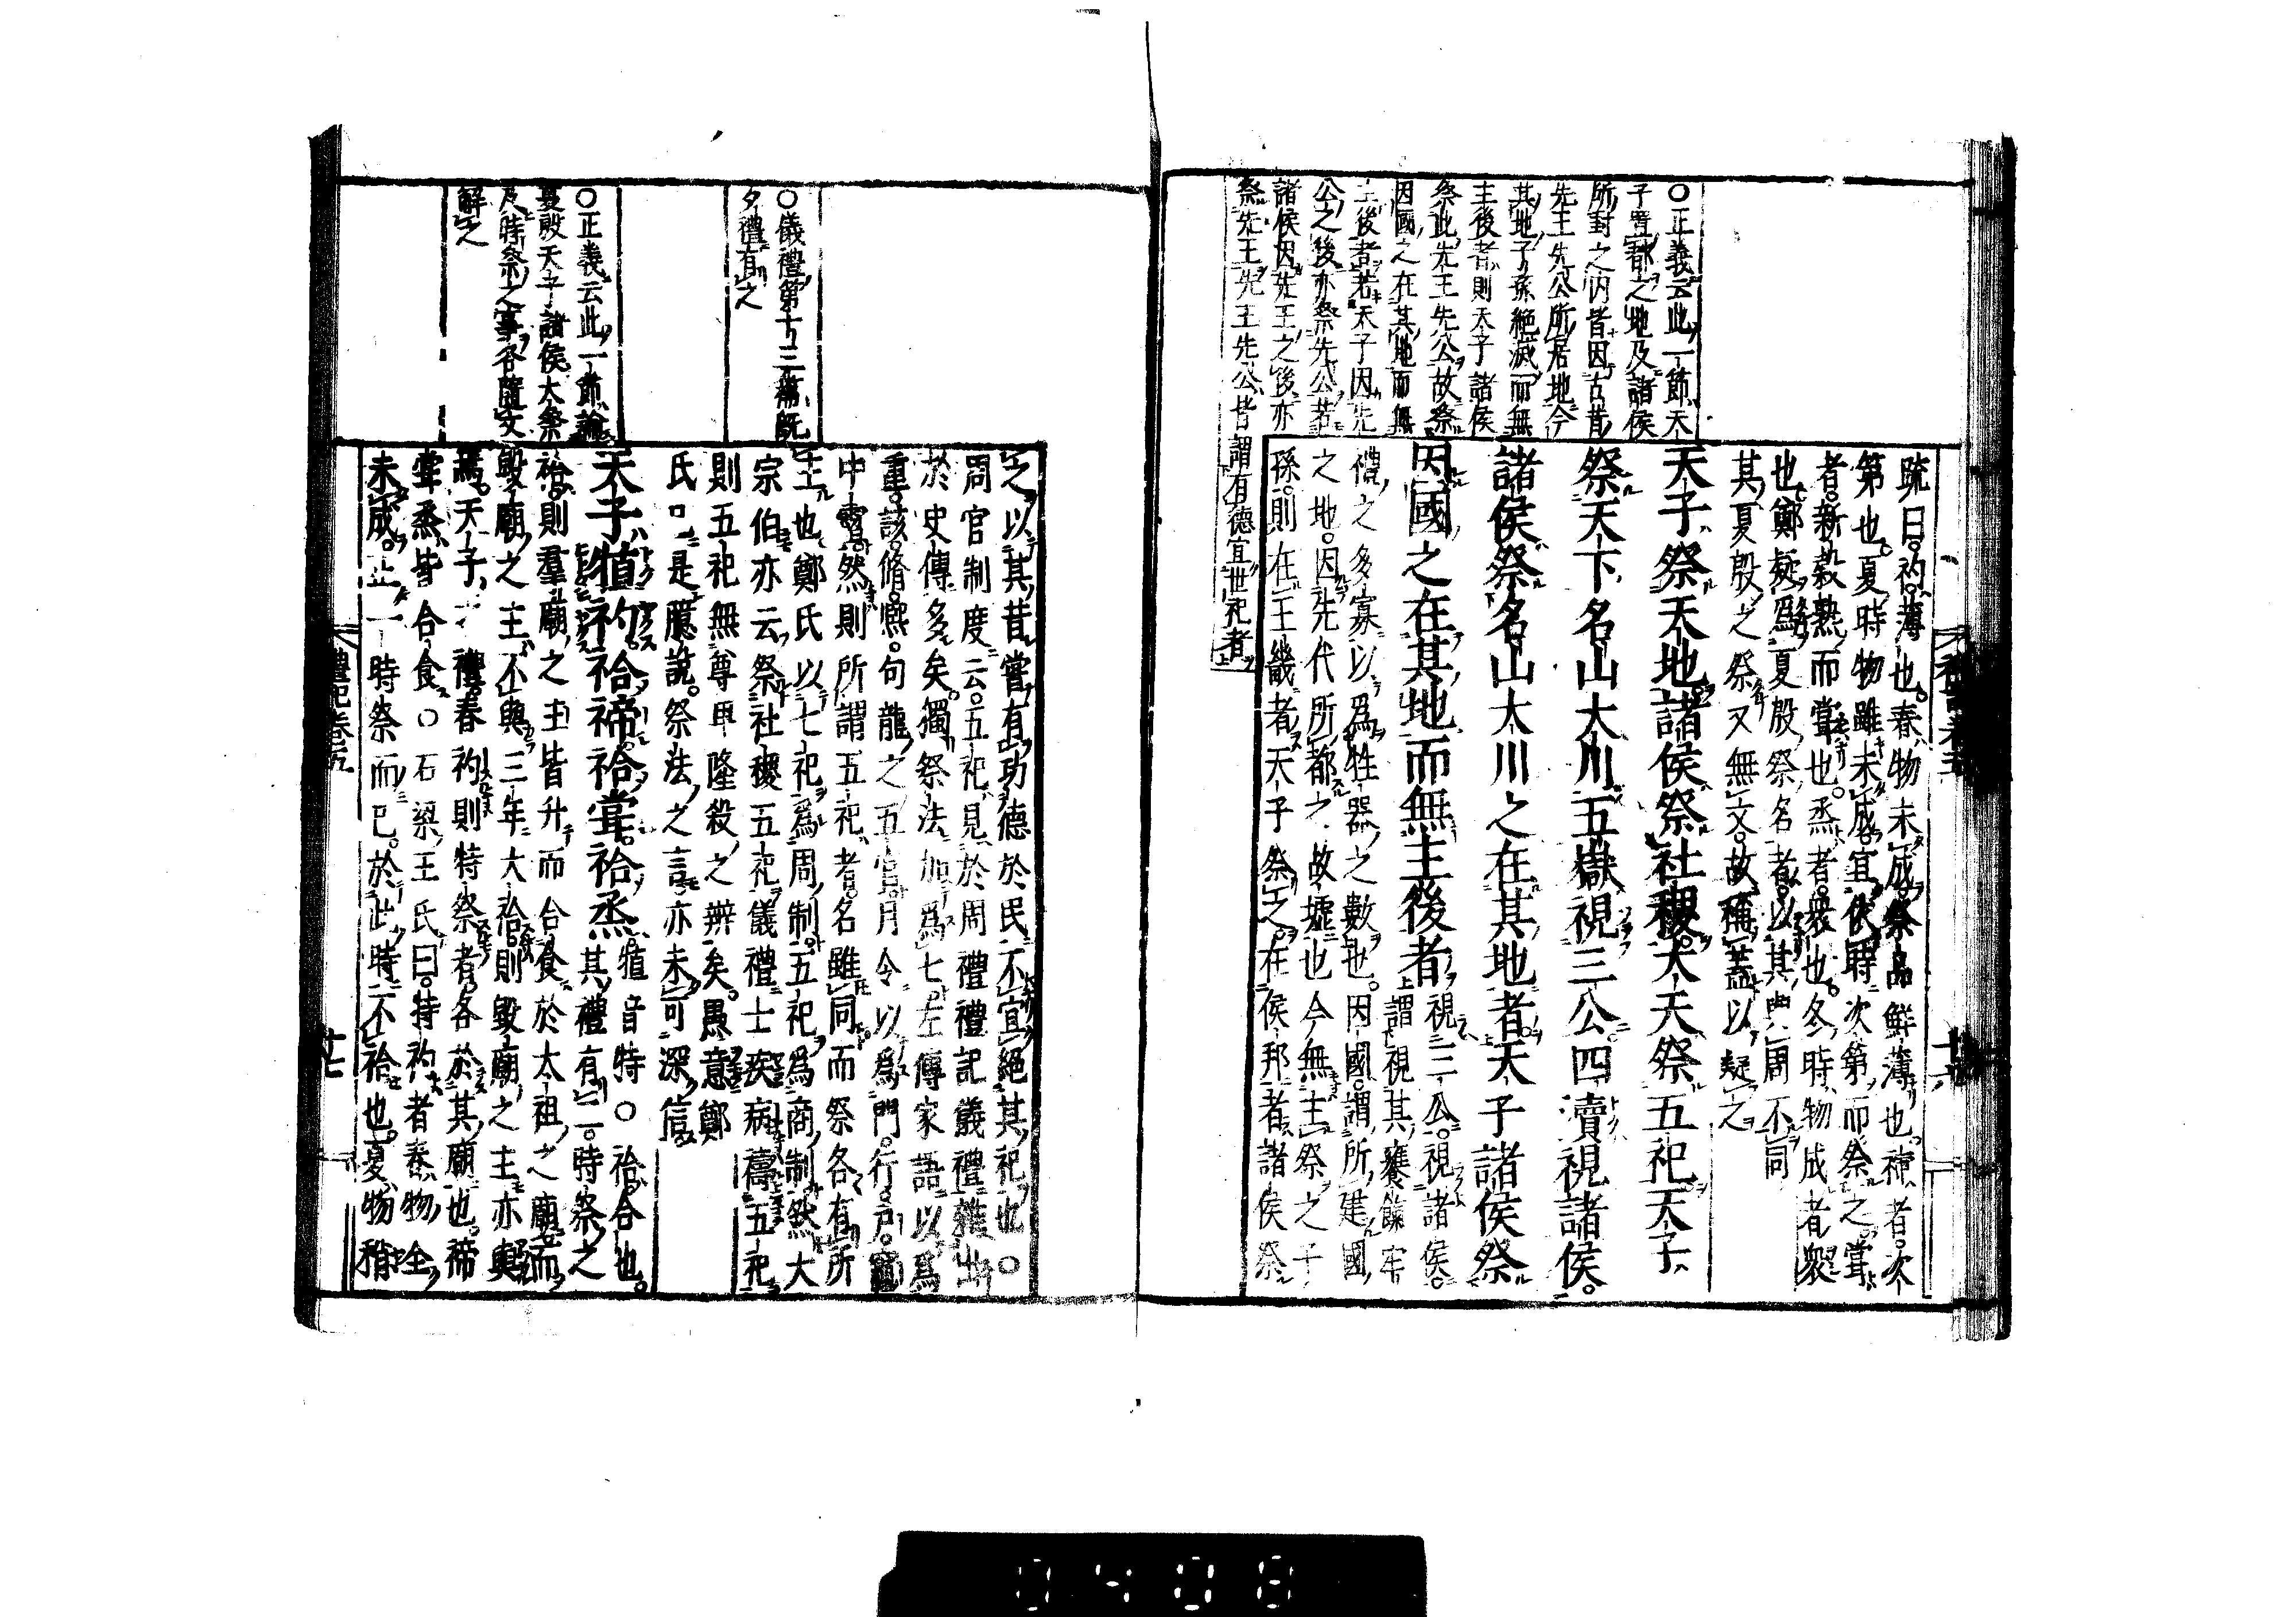 ○正義云此一節天
子畺都之地及諸侯
所封之内皆因古昔
先王先公所居地今
其地子孫絶滅而無
主後者則天子諸侯
祭此先王先公故祭
因國之在其地而無
主後者若天子因先
公之後亦祭先公若
諸侯因先王之後亦
祭先王先王先公皆謂有德宜世祀者
疏曰礿薄也春物未成祭品鮮薄也禘者次
第也夏時物雖未成宜依時次第而祭之甞
者新穀熟而甞也烝者衆也冬時物成者衆
也鄭疑爲夏殷祭名者以其與周不同
其夏殷之祭又無文故稱蓋以疑之
天子祭天地諸侯祭社稷大夫祭五祀天子
祭天下名山大川五嶽視三公四瀆視諸侯
諸侯祭名山大川之在其地者天子諸侯祭
因國之在其地而無主後者
視三公視諸侯
謂視其饔餼牢
禮之多寡以爲牲器之數也因國謂所建國
之地因先代所都之故墟也今無主祭之子
孫則在王畿者天子祭之在侯邦者諸侯祭
禮記卷五
○儀禮第十三篇旣
夕禮有之
○正義云此一節論
夏殷天子諸侯大祭
及時祭之事各隨文
解之
之以其昔嘗有功德於民不宜絶其祀也○
周官制度云五祀見於周禮禮記儀禮雜出
於史傳多矣獨祭法加爲七左傳家語以爲
重該脩熙句龍之五官月令以爲門行戸竈
中霤然則所謂五祀者名雖同而祭各有所
主也鄭氏以七祀爲周制五祀爲商制然大
宗伯亦云祭社稷五祀儀禮士疾病禱五祀
則五祀無尊卑隆殺之辨矣愚意鄭
氏曰是臆說祭法之言亦未可深信
天子犆礿祫禘祫甞祫烝
犆音特○祫合也
其禮有二時祭之
祫則羣廟之主皆升而合食於太祖之廟而
毀廟之主不與三年大祫則毀廟之主亦與
焉天子之禮春礿則特祭者各於其廟也禘
甞烝皆合食○石梁王氏曰特礿者春物全
未成止一時祭而已於此時不祫也夏物稍
禮記卷五
十七
0408